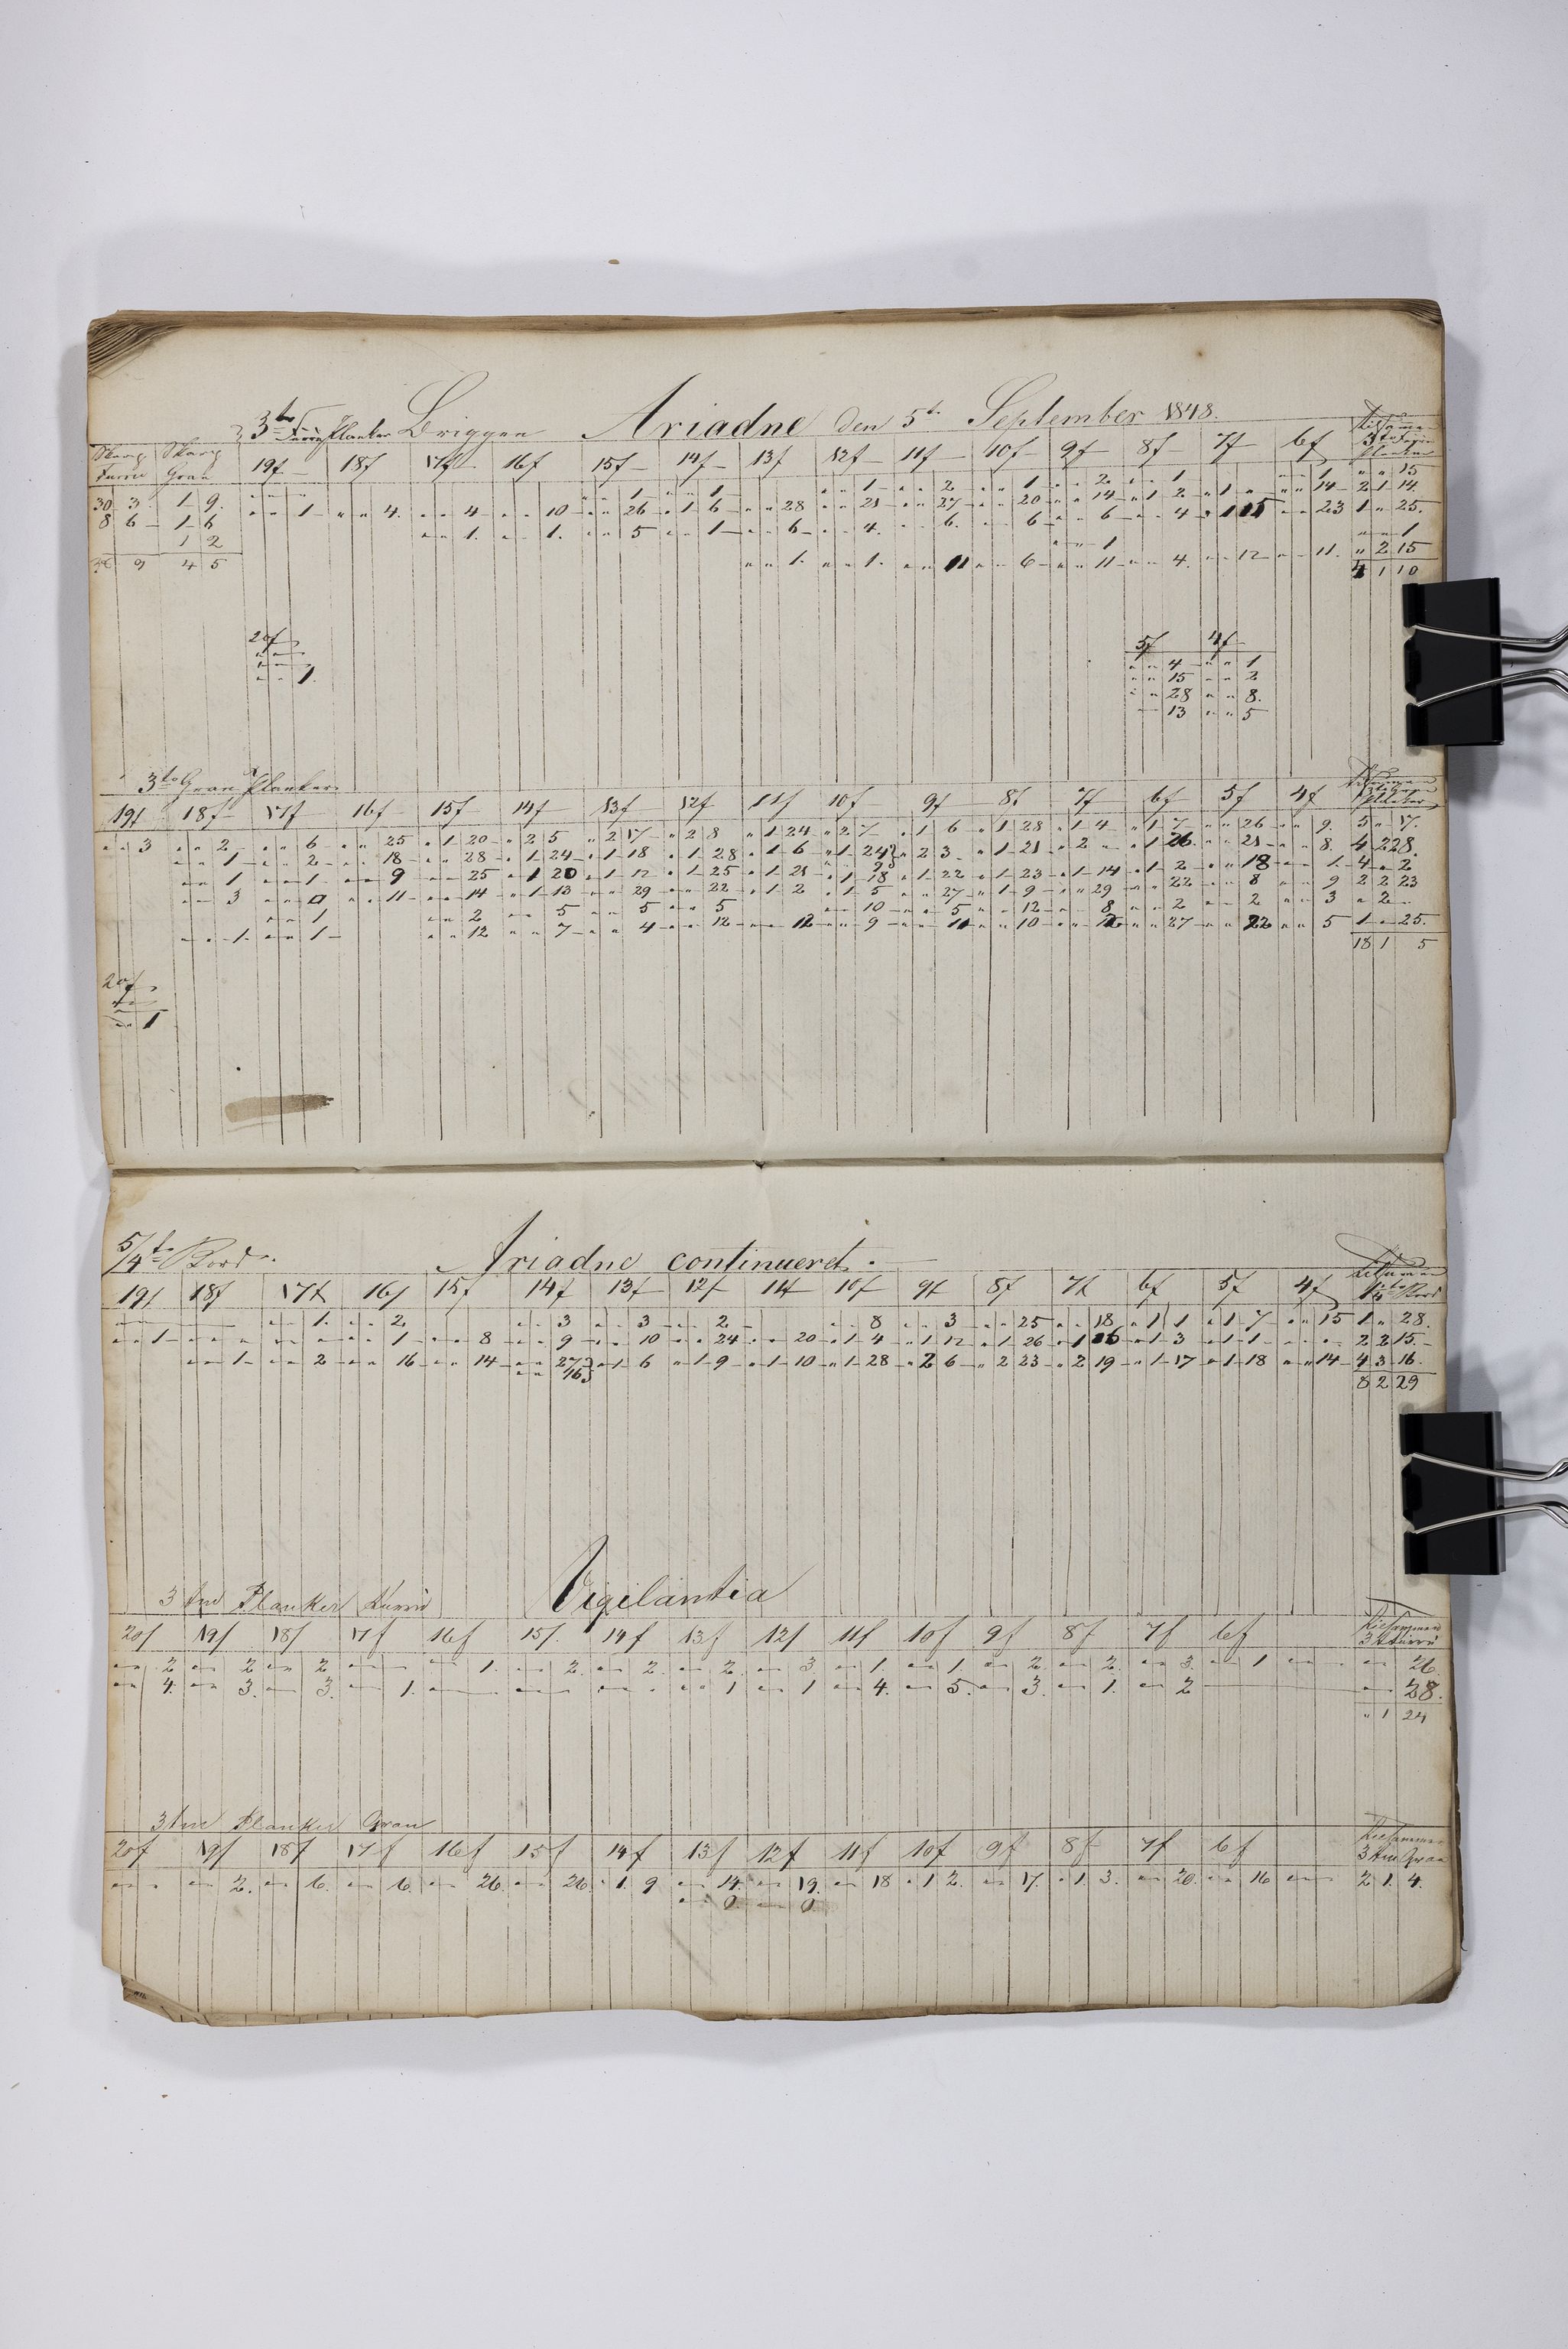 3t Furru Planker Briggen Ariadne den 5t September 1848.
Skarg Furru Skarg Gran 19f 18f 17f 16f 15f 14f 13f 12f 11f 10f 9f 8f 7f 6f
" " 1 " " 1 " " 1 " " 2 " " 1 " " 2 " " 1 " " 1 " " 15
30 3 1 9. " " 1 " " 4. " " 4 " " 10 " " 26 " 1 6 " " 28 " " 21 " " 27 " " 20 " " 14 " 1 2 " 1 " " " 14 2 1 14.
8 6 1 6 " " 1. " " 1. " " 5 " " 1 " " 6 " " 4. " " 6. " " 6 " " 6 " " 4 " 1 15 " " 23 1 " 25.
1 2 " " 1 " " 1
38 9 4 5 " " 1. " " 1. " " 11 " " 6 " " 11 " " 4. " " 12 " " 11. " 2 15
4 1 10
20f
" " 1.
5f 4f
" " 4 " " 1
" " 15 " " 2
" " 28 " " 8.
" " 13 " " 5
3to Gran Planker
19f 18f 17f 16f 15f 14f 13f 12f 11f 10f 9f 8f 7f 6f 5f 4f
" " 3 " " 2 " " 6 " " 25 " 1 20 " 2 5 " 2 17 " 2 8 " 1 24 " 2 7 " 1 6 " 1 28 " 1 4 " 1 7 " " 26 " " 9. 5 " 17.
" " 1 " " 2 " " 18 " " 28 " 1 24 " 1 18 " 1 28 " 1 6 " 1 24 " 2 3 " 1 21 " 2 " " 1 26 " " 21 " " 8. 4 2 28.
" " 1 " " 1 " " 9 " " 25 " 1 20 " 1 12 " 1 25 " 1 21 " 1 18 " 1 22 " 1 23 " 1 14 " 1 2 " " 18 " " 1. 4 " 2
" " 3 " " " " 11 " " 14 " 1 13 " " 29 " " 22 " 1 2 " 1 5 " " 27 " 1 9 " " 29 " " 22 " " 8 " " 9 2 2 23
" " 1 " " 2 " " 5 " " 5 " " 5 " " 10 " " 5 " " 12 " " 8 " " 2 " " 2 " " 3 " 2 "
" " 1. " " 1 " " 12 " " 7 " " 4 " " 12 " " 12 " " 9 " " 11 " " 10 " " 12 " " 27 " " 22 " " 5 1 " 25.
18 1 5
20f
" " 1
5/4t Bord. Ariadne continueret.
19f 18f 17f 16f 15f 14f 13f 12f 11f 10f 9f 8f 7f 6f 5f 4f
" " 1. " " 2 " " 3 " " 3 " " 2 " " 8 " " 3 " " 25 " " 18 " 1 1 " 1 7 " " 15 1 " 28.
" " 1 " " " " " " " " 1 " " 8 " " 9 " " 10 " " 24 " " 20 " 1 4 " 1 12 " 1 26 " 1 26 " 1 3 " 1 1 " " " 2 2 15
" " 1 " " 2 " " 16 " " 14 " " 27 " 1 6 " 1 9 " 1 10 " 1 28 " 2 6 " 2 23 " 2 19 " 1 17 " 1 18 " " 14 4 3 16.
" " 16 8 2 29
Vigilantia
3 tme Planker Furru
20f 19f 18f 17f 16f 15f 14f 13f 12f 11f 10f 9f 8f 7f 6f
" " 2 " " 2 " " 2 " " " " 1. " " 2. " " 2. " " 2. " " 3 " " 1. " " 1. " " 2. " " 2. " " 3. " " 1 " " 26
" " 4. " " 3. " " 3. " " 1. " " 1 " " 1 " " 4. " " 5. " " 3. " " 1. " " 2 " " 28.
" 1 24
3 tme Planker Gran
20f 19f 18f 17f 16f 15f 14f 13f 12f 11f 10f 9f 8f 7f 6f
" " " " " 2. " " 6. " " 6. " " 26. " " 26. " 1. 9 " " 14. " " 19. " " 18 " 1 2. " " 17. " 1. 3. " " 20. " " 16 " " 2 1. 4.
" " 0 " " 0